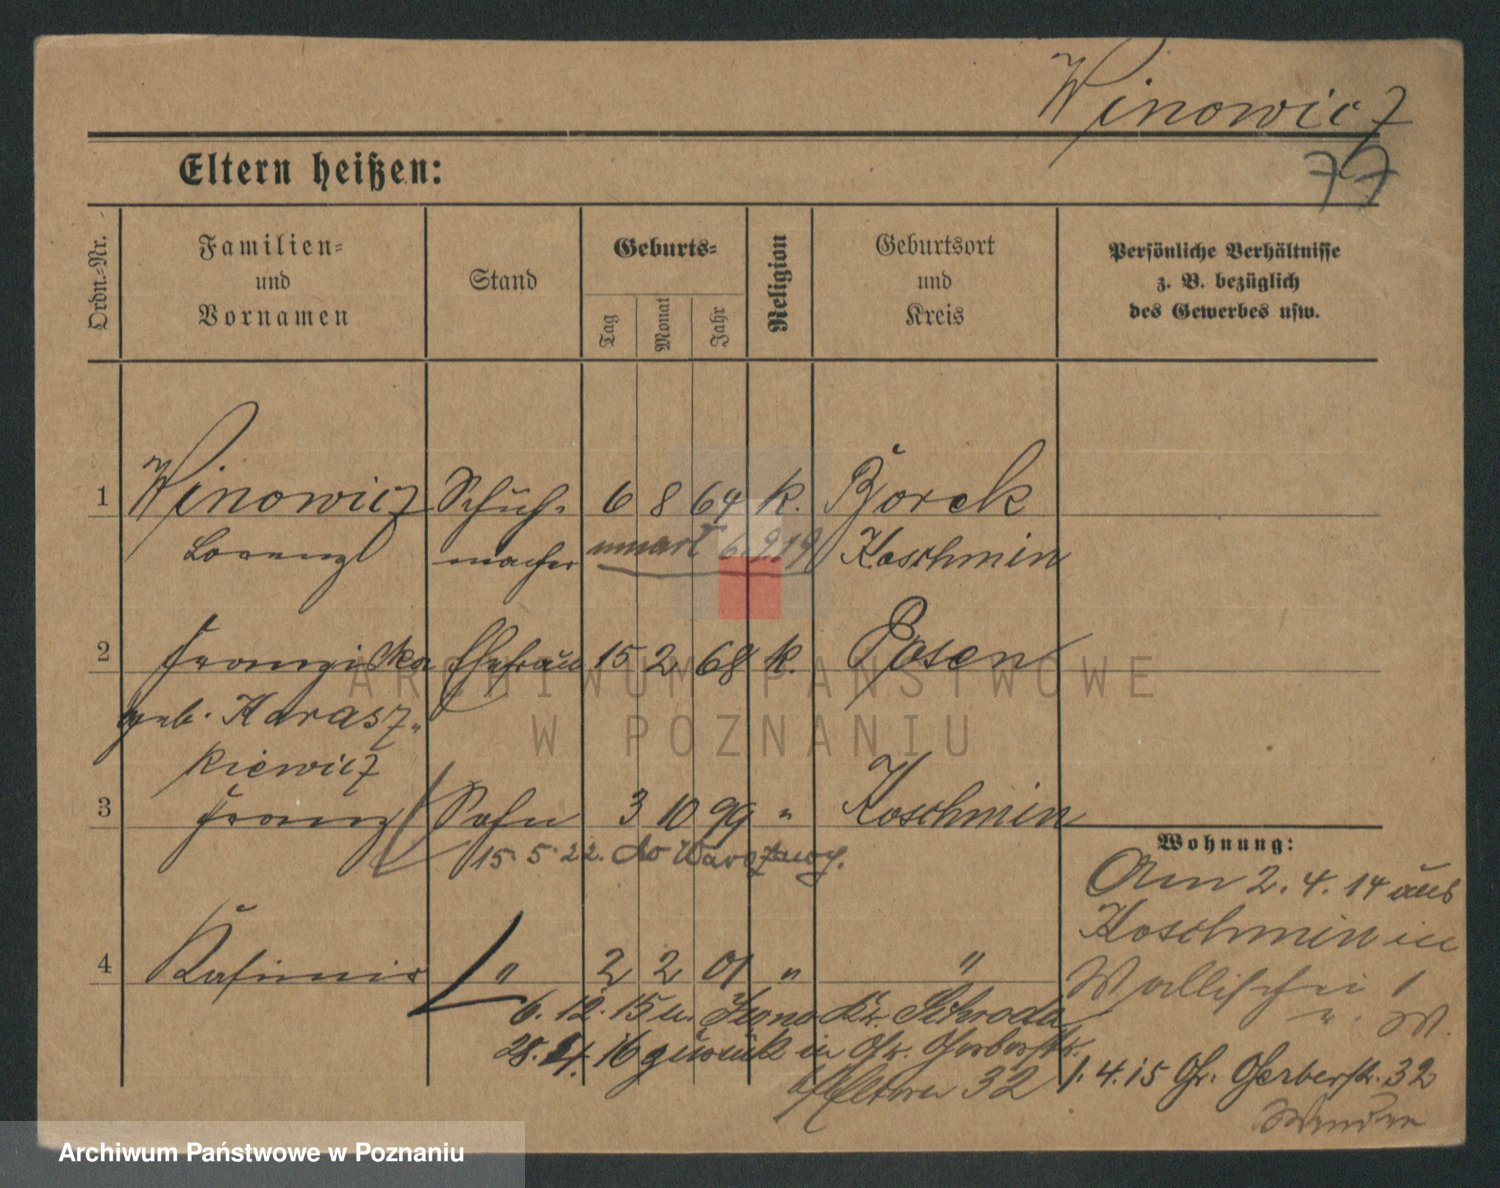 Winowicz
77
Eltern heißen:
Ordn.=Nr.
Familien=
und
Vornamen
Stand
Geburts=
Tag
Monat
Jahr
Religion
Geburtsort
und
Kreis
Persönliche Verhältnisse
z. B. bezüglich
des Gewerbes usw.
1 Winowicz Schuh= 6 8 64 k. Borek
Lorenz macher 6.9.19 Koschmin
2 Franziska Ehefrau 15 2 68 k. Posen
geb. Karasz=
kiewicz
3 Franz Sohn 3 10 99 " Koschmin
15. 5. 22. do
Wohnung:
Am 2. 4. 14 aus
Koschmin in
Wallischei 1
4 Kasimir " 2 2 01 " "
6. 12. 15 n. Kr. Schroda
28. 4. 16 zurück in Gr. Gerberstr.
Eltern 32
1. 4. 15 Gr. Gerberstr. 32
ARCHIWUM PAŃSTWOWE
W POZNANIU
Archiwum Państwowe w Poznaniu